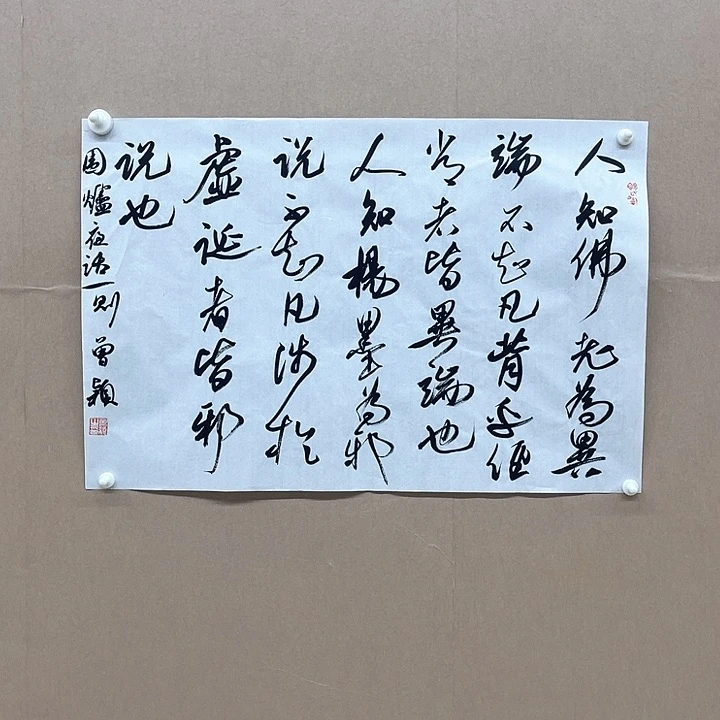 人知佛老為異
端不知凡背乎經
常者皆異端也
人知楊墨為邪
說不知凡涉於
虛誕者皆邪
說也
围爐夜话一则 曾颖